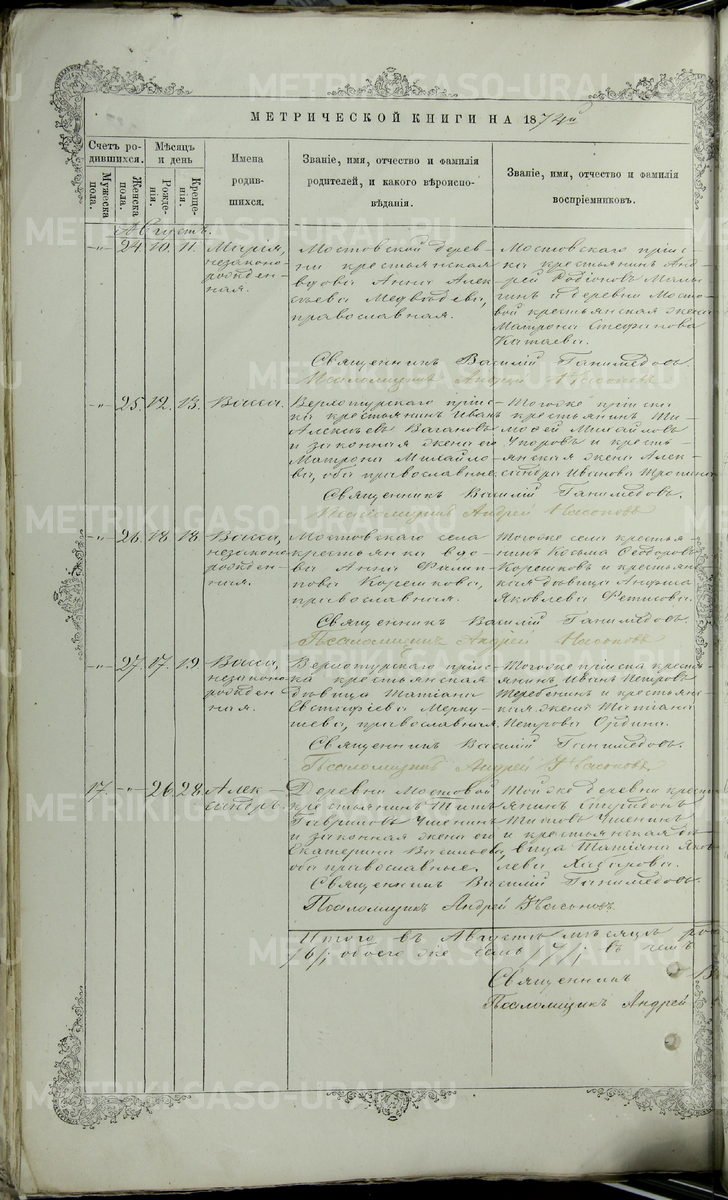 МЕТРИЧЕСКОЙ КНИГИ НА 1874й
Счетъ родившихся.
Мужеска пола.
Женска пола.
Мѣсяцъ и день
Рожденія.
Крещенія.
Имена родившихся.
Званіе, имя, отчество и фамилія
родителей, и какого вѣроиспо-
вѣданія.
Званіе, имя, отчество и фамилія
воспріемниковъ.
Августъ.
-„- 24. 10. 11.
Марія,
незаконо-
рожден-
ная.
Мостовской дерев-
ни крестьянская
вдова Анна Алек-
сѣева Медвѣдева,
православная.
Мостовскаго пріис-
ка крестьянинъ Анд-
рей Родіоновъ Малы-
гинъ и деревни Мосто-
вой крестьянская жена
Матрона Стефанова
Катаева.
Священникъ Василій Ганимедовъ.
Псаломщикъ Андрей Насоновъ
-„- 25. 12. 13.
Васса.
Верхотурскаго пріис-
ка крестьянинъ Иванъ
Алексѣевъ Вагановъ
и законная жена его
Матрона Михайло-
ва, оба православные.
Тогоже пріиска
крестьянинъ Ти-
мофей Михайловъ
Упоровъ и кресть-
янская жена Алек-
сандра Иванова
Священникъ Василій Ганимедовъ.
Псаломщикъ Андрей Насоновъ
-„- 26. 18. 18.
Васса,
незаконо-
рожден-
ная.
Мостовскаго села
крестьянка вдо-
ва Анна Филип-
пова Корешкова,
православная.
Тогоже села крестья-
нинъ Косьма Ѳедоровъ
Корешковъ и крестьян-
ская дѣвица
Яковлева Фетисова.
Священникъ Василій Ганимедовъ.
Псаломщикъ Андрей Насоновъ
-„- 27. 17. 19
Васса,
незаконо-
рожден-
ная.
Верхотурскаго пріис-
ка крестьянская
дѣвица Татіана
Евстафіева Мерку-
шева, православная.
Тогоже пріиска кресть-
янинъ Иванъ Петровъ
Теребенинъ и крестьянс-
кая жена Татіана
Петрова Ордина.
Священникъ Василій Ганимедовъ.
Псаломщикъ Андрей Насоновъ.
17. -„- 26. 28.
Алек-
сандръ.
Деревни Мостовой
крестьянинъ Титъ
Гавриловъ Ушенинъ
и законная жена его
Екатерина Васильева,
оба православные.
Тойже деревни кресть-
янинъ Спиридонъ
Титовъ Ушенинъ
и крестьянская дѣ-
вица Татіана Яков-
лева Хабарова.
Священникъ Василій Ганимедовъ.
Псаломщикъ Андрей Насоновъ
Итого въ Августѣ мѣсяцѣ ро
обоего же семь въ чемъ
Священникъ В
Псаломщикъ Андрей
METRIKI.GASO-URAL.RU